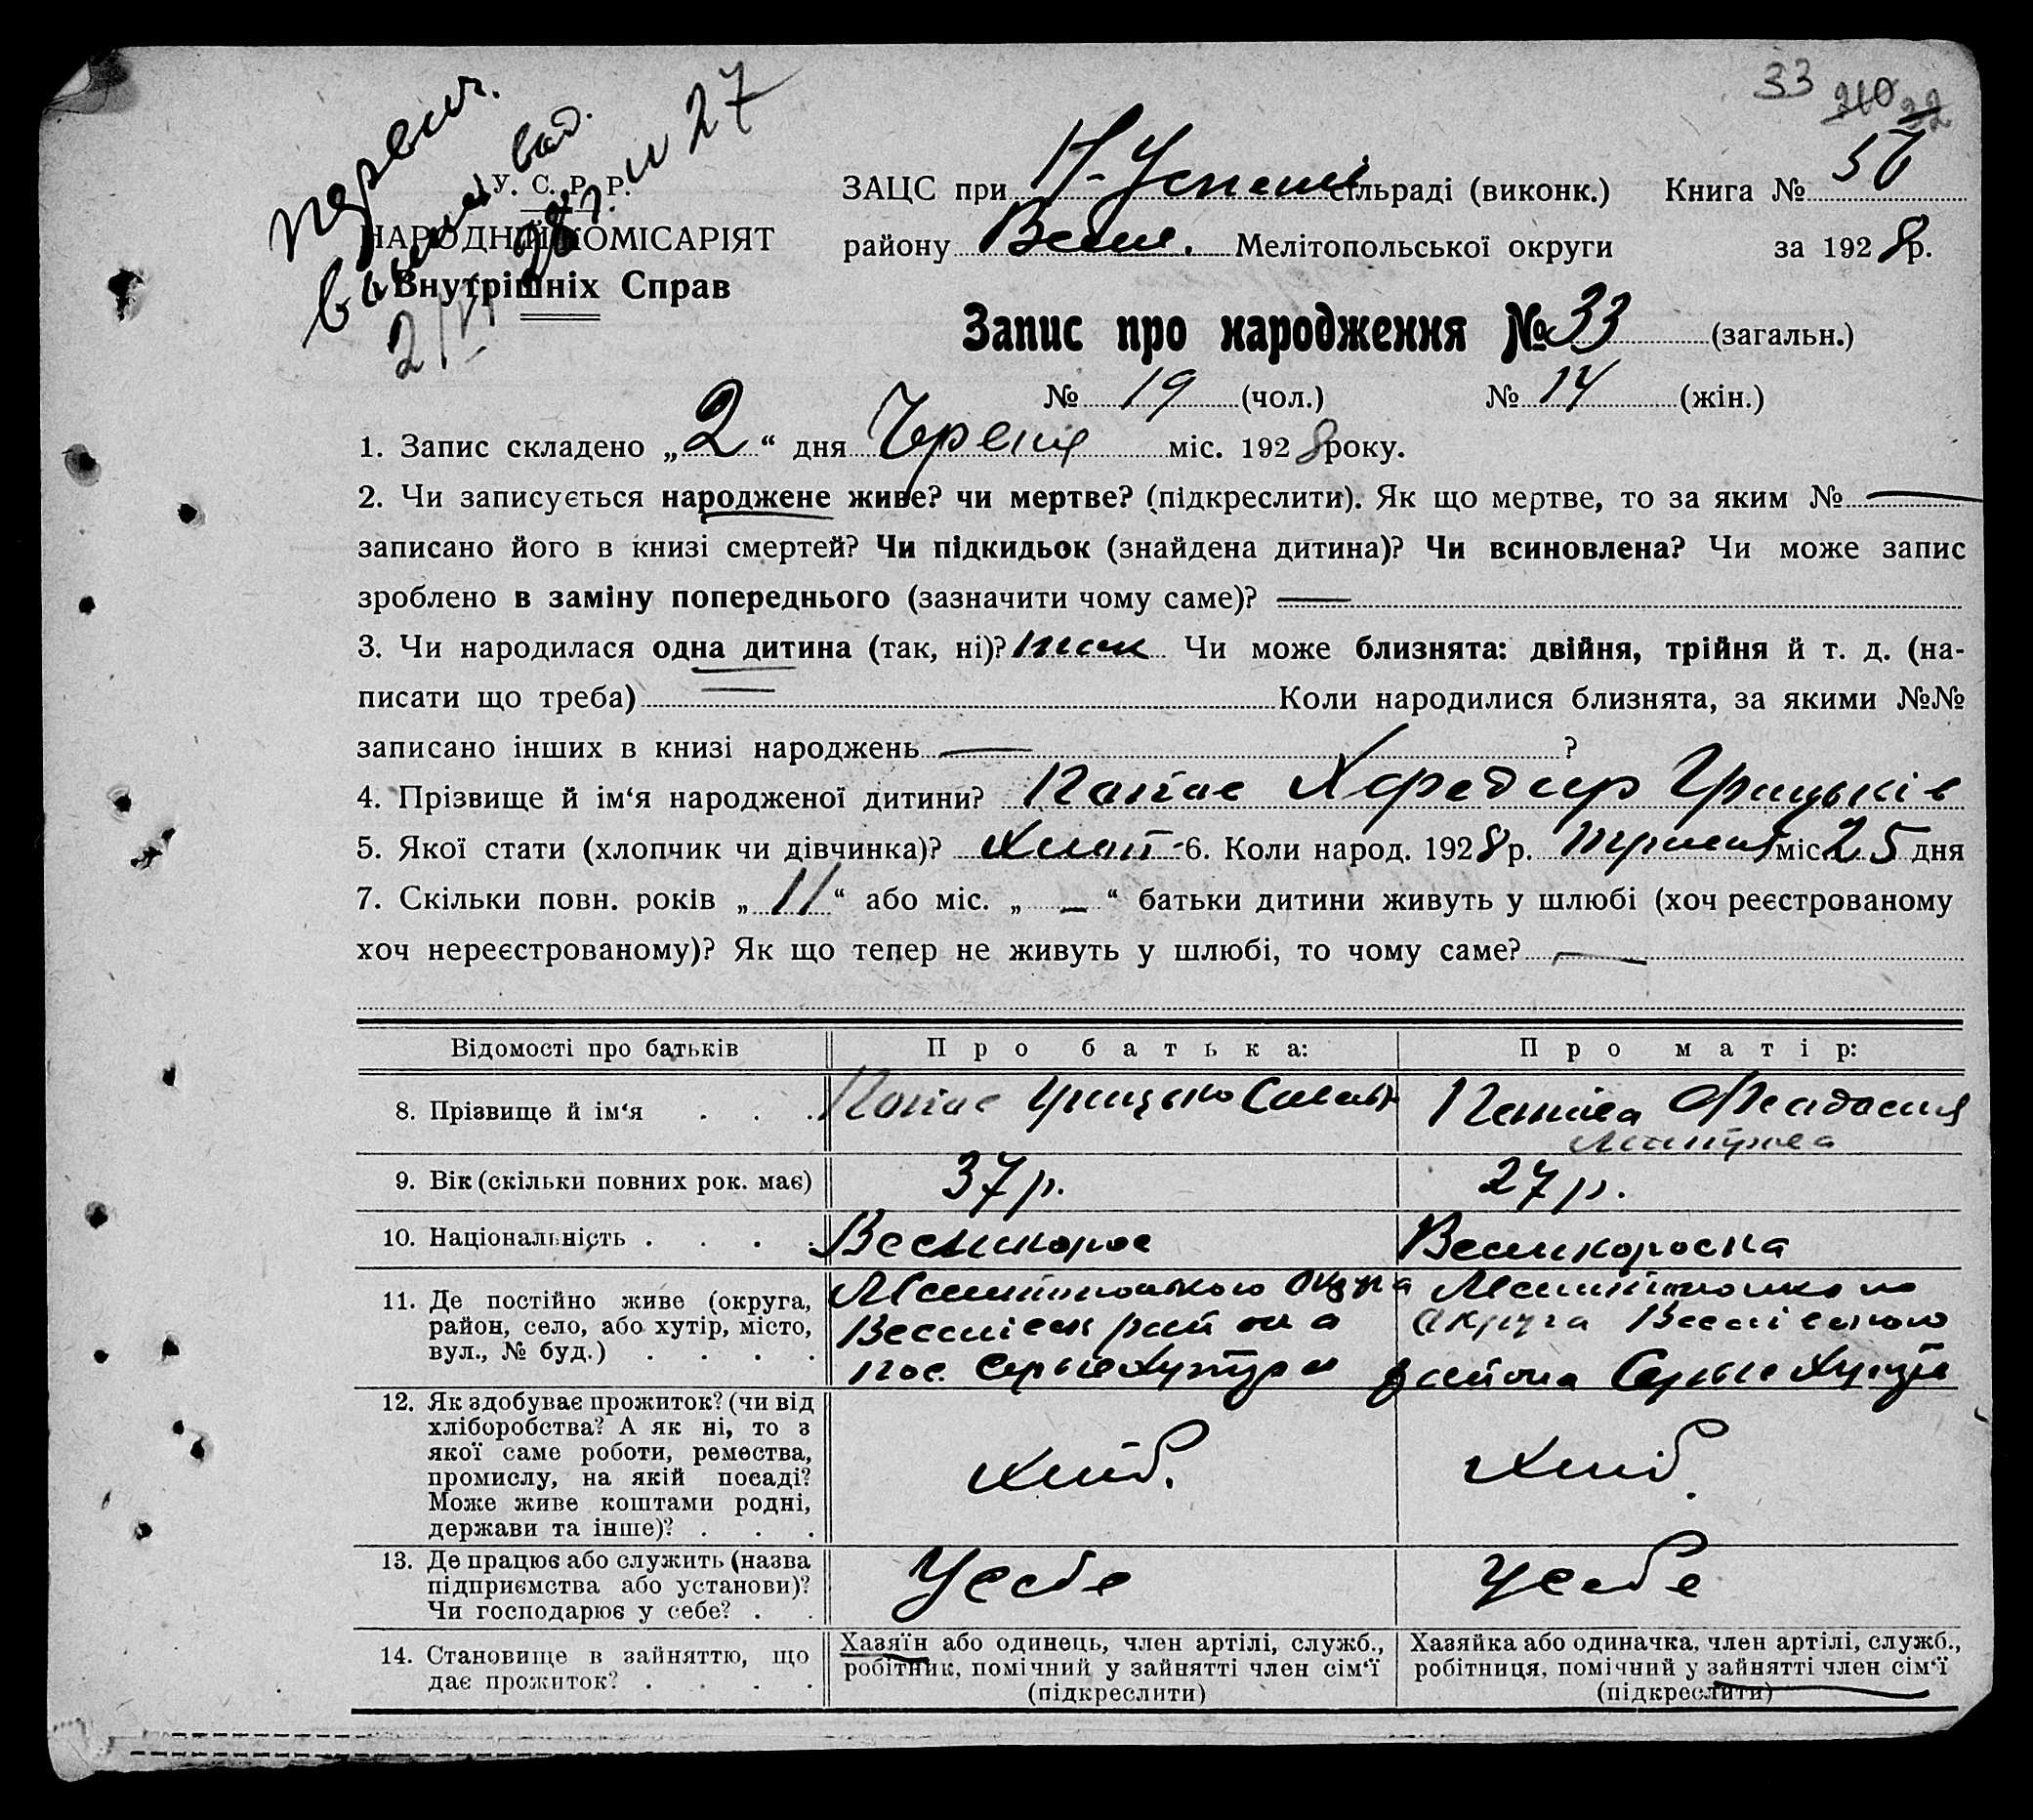 33 32
У. С. Р. Р.
НАРОДНІЙ КОМІСАРІЯТ
Внутрішніх Справ
27
ЗАЦС при Н-Успені сільраді (виконк.) Книга №
району Весел. Мелітопольської округи за 1928 р.
Запис про народження № 33 (загальн.)
№ 19 (чол.) № 14 (жін.)
1. Запис складено „2“ дня Червня міс. 1928 року.
2. Чи записується народжене живе? чи мертве? (підкреслити). Як що мертве, то за яким № —
записано його в книзі смертей? Чи підкидьок (знайдена дитина)? Чи всиновлена? Чи може запис
зроблено в заміну попереднього (зазначити чому саме)? —
3. Чи народилася одна дитина (так, ні)? так Чи може близнята: двійня, трійня й т. д. (на-
писати що треба) — Коли народилися близнята, за якими №№
записано інших в книзі народжень — ?
4. Прізвище й ім‘я народженої дитини? Грицьків
5. Якої стати (хлопчик чи дівчинка)? Хлоп- 6. Коли народ. 1928 р. Травня міс. 25 дня
7. Скільки повн. років „11“ або міс. „—“ батьки дитини живуть у шлюбі (хоч реєстрованому
хоч нереєстрованому)? Як що тепер не живуть у шлюбі, то чому саме? —
Відомості про батьків Про батька: Про матір:
8. Прізвище й ім‘я . . . Грицько Савов
9. Вік (скільки повних рок. має) 37 р. 27 р.
10. Національність . . . . Великорос Великороска
11. Де постійно живе (округа, Мелітопольского округа Мелітопольского
район, село, або хутір, місто, Веселівск района округа Веселівского
вул., № буд.) . . . . пос. Серые Хутора района Серые Хутора
12. Як здобуває прожиток? (чи від
хліборобства? А як ні, то з
якої саме роботи, ремества, хліб. хліб.
промислу, на якій посаді?
Може живе коштами родні,
держави та інше)? . . .
13. Де працює або служить (назва
підприємства або установи)? У себе У себе
Чи господарює у себе? . .
14. Становище в зайняттю, що Хазяїн або одинець, член артілі, служб., Хазяйка або одиначка, член артілі, служб.,
дає прожиток? . . . . робітник, помічний у зайнятті член сім‘ї робітниця, помічний у зайнятті член сім‘ї
(підкреслити) (підкреслити)